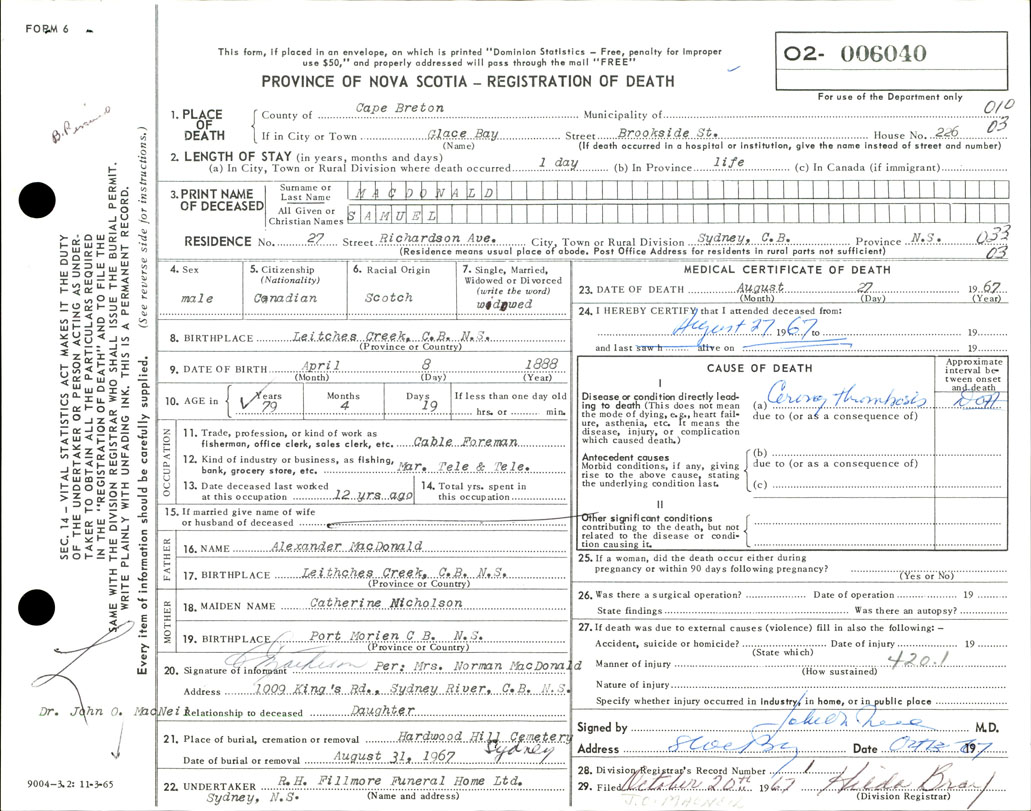 FORM 6
This form, if placed in an envelope, on which is printed "Dominion Statistics – Free, penalty for improper
use $50," and properly addressed will pass through the mail "FREE"
PROVINCE OF NOVA SCOTIA – REGISTRATION OF DEATH
02- 006040
For use of the Department only
010
03
1. PLACE OF DEATH
County of Cape Breton Municipality of
If in City or Town Glace Bay Street Brookside St. House No. 226
(Name) (If death occurred in a hospital or institution, give the name instead of street and number)
2. LENGTH OF STAY (in years, months and days)
(a) In City, Town or Rural Division where death occurred 1 day (b) In Province life (c) In Canada (if immigrant)
3. PRINT NAME OF DECEASED
Surname or Last Name MACDONALD
All Given or Christian Names SAMUEL
RESIDENCE No. 27 Street Richardson Ave. City, Town or Rural Division Sydney, C.B. Province N.S. 033
03
(Residence means usual place of abode. Post Office Address for residents in rural parts not sufficient)
4. Sex
male
5. Citizenship
(Nationality)
Canadian
6. Racial Origin
Scotch
7. Single, Married,
Widowed or Divorced
(write the word)
widowed
8. BIRTHPLACE Leitches Creek, C.B. N.S.
(Province or Country)
9. DATE OF BIRTH April 8 1888
(Month) (Day) (Year)
10. AGE in Years Months Days If less than one day old
79 4 19 hrs. or min.
OCCUPATION
11. Trade, profession, or kind of work as
fisherman, office clerk, sales clerk, etc. Cable Foreman
12. Kind of industry or business, as fishing,
bank, grocery store, etc. Mar. Tele & Tele.
13. Date deceased last worked
at this occupation 12 yrs ago
14. Total yrs. spent in
this occupation
15. If married give name of wife
or husband of deceased
FATHER
16. NAME Alexander MacDonald
17. BIRTHPLACE Leithches Creek, C.B. N.S.
(Province or Country)
MOTHER
18. MAIDEN NAME Catherine Nicholson
19. BIRTHPLACE Port Morien C B. N.S.
(Province or Country)
20. Signature of informant Per: Mrs. Norman MacDonald
Address 1009 King's Rd., Sydney River, C.B. N.S.
Dr. John O. MacNeil
Relationship to deceased Daughter
21. Place of burial, cremation or removal Hardwood Hill Cemetery
Sydney
Date of burial or removal August 31, 1967
22. UNDERTAKER R.H. Fillmore Funeral Home Ltd.
Sydney, N.S. (Name and address)
MEDICAL CERTIFICATE OF DEATH
23. DATE OF DEATH August 27 1967
(Month) (Day) (Year)
24. I HEREBY CERTIFY that I attended deceased from:
August 27 1967 to 19
and last saw h alive on 19
CAUSE OF DEATH
Approximate interval between onset and death
I
Disease or condition directly leading to death (This does not mean the mode of dying, e.g., heart failure, asthenia, etc. It means the disease, injury, or complication which caused death.)
(a) thrombosis
due to (or as a consequence of)
Antecedent causes
Morbid conditions, if any, giving rise to the above cause, stating the underlying condition last.
(b)
due to (or as a consequence of)
(c)
II
Other significant conditions
contributing to the death, but not related to the disease or condition causing it.
25. If a woman, did the death occur either during
pregnancy or within 90 days following pregnancy?
(Yes or No)
26. Was there a surgical operation? Date of operation 19
State findings Was there an autopsy?
27. If death was due to external causes (violence) fill in also the following: –
Accident, suicide or homicide? Date of injury 19
(State which)
Manner of injury 420.1
(How sustained)
Nature of injury
Specify whether injury occurred in industry, in home, or in public place
Signed by M.D.
Address Date 1967
28. Division Registrar's Record Number 1
29. Filed October 20th 1967
(Division Registrar)
J.O. MACNEIL
SEC. 14 – VITAL STATISTICS ACT MAKES IT THE DUTY
OF THE UNDERTAKER OR PERSON ACTING AS UNDER-
TAKER TO OBTAIN ALL THE PARTICULARS REQUIRED
IN THE "REGISTRATION OF DEATH" AND TO FILE THE
SAME WITH THE DIVISION REGISTRAR WHO SHALL ISSUE THE BURIAL PERMIT.
WRITE PLAINLY WITH UNFADING INK. THIS IS A PERMANENT RECORD.
Every item of information should be carefully supplied. (See reverse side for instructions.)
9004–3.2: 11-3-65